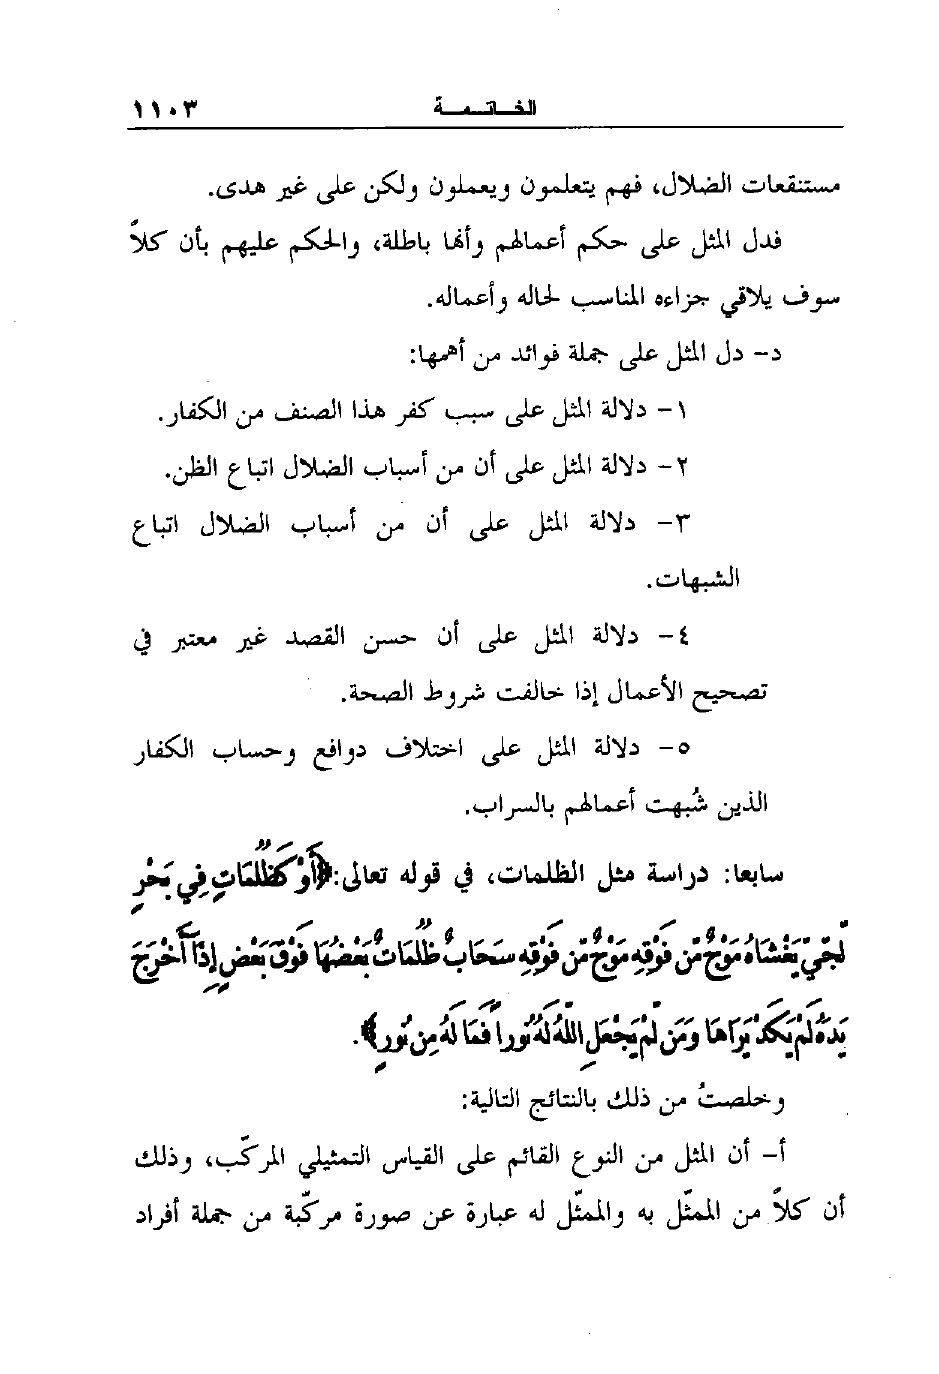 الخـاتـمـة ١١٠٣
مستنقعات الضلال، فهم يتعلمون ويعملون ولكن على غير هدى.
فدل المثل على حكم أعمالهم وأنها باطلة، والحكم عليهم بأن كلاً
سوف يلاقي جزاءه المناسب لحاله وأعماله.
د- دل المثل على جملة فوائد من أهمها:
١- دلالة المثل على سبب كفر هذا الصنف من الكفار.
٢- دلالة المثل على أن من أسباب الضلال اتباع الظن.
٣- دلالة المثل على أن من أسباب الضلال اتباع
الشبهات.
٤- دلالة المثل على أن حسن القصد غير معتبر في
تصحيح الأعمال إذا خالفت شروط الصحة.
٥- دلالة المثل على اختلاف دوافع وحساب الكفار
الذين شُبهت أعمالهم بالسراب.
سابعا: دراسة مثل الظلمات، في قوله تعالى: ﴿أَوْ كَظُلُمَاتٍ فِي بَحْرٍ
لُّجِّيٍّ يَغْشَاهُ مَوْجٌ مِّن فَوْقِهِ مَوْجٌ مِّن فَوْقِهِ سَحَابٌ ظُلُمَاتٌ بَعْضُهَا فَوْقَ بَعْضٍ إِذَا أَخْرَجَ
يَدَهُ لَمْ يَكَدْ يَرَاهَا وَمَن لَّمْ يَجْعَلِ اللَّهُ لَهُ نُوراً فَمَا لَهُ مِن نُورٍ﴾.
وخلصتُ من ذلك بالنتائج التالية:
أ- أن المثل من النوع القائم على القياس التمثيلي المركّب، وذلك
أن كلاً من الممثّل به والممثّل له عبارة عن صورة مركّبة من جملة أفراد